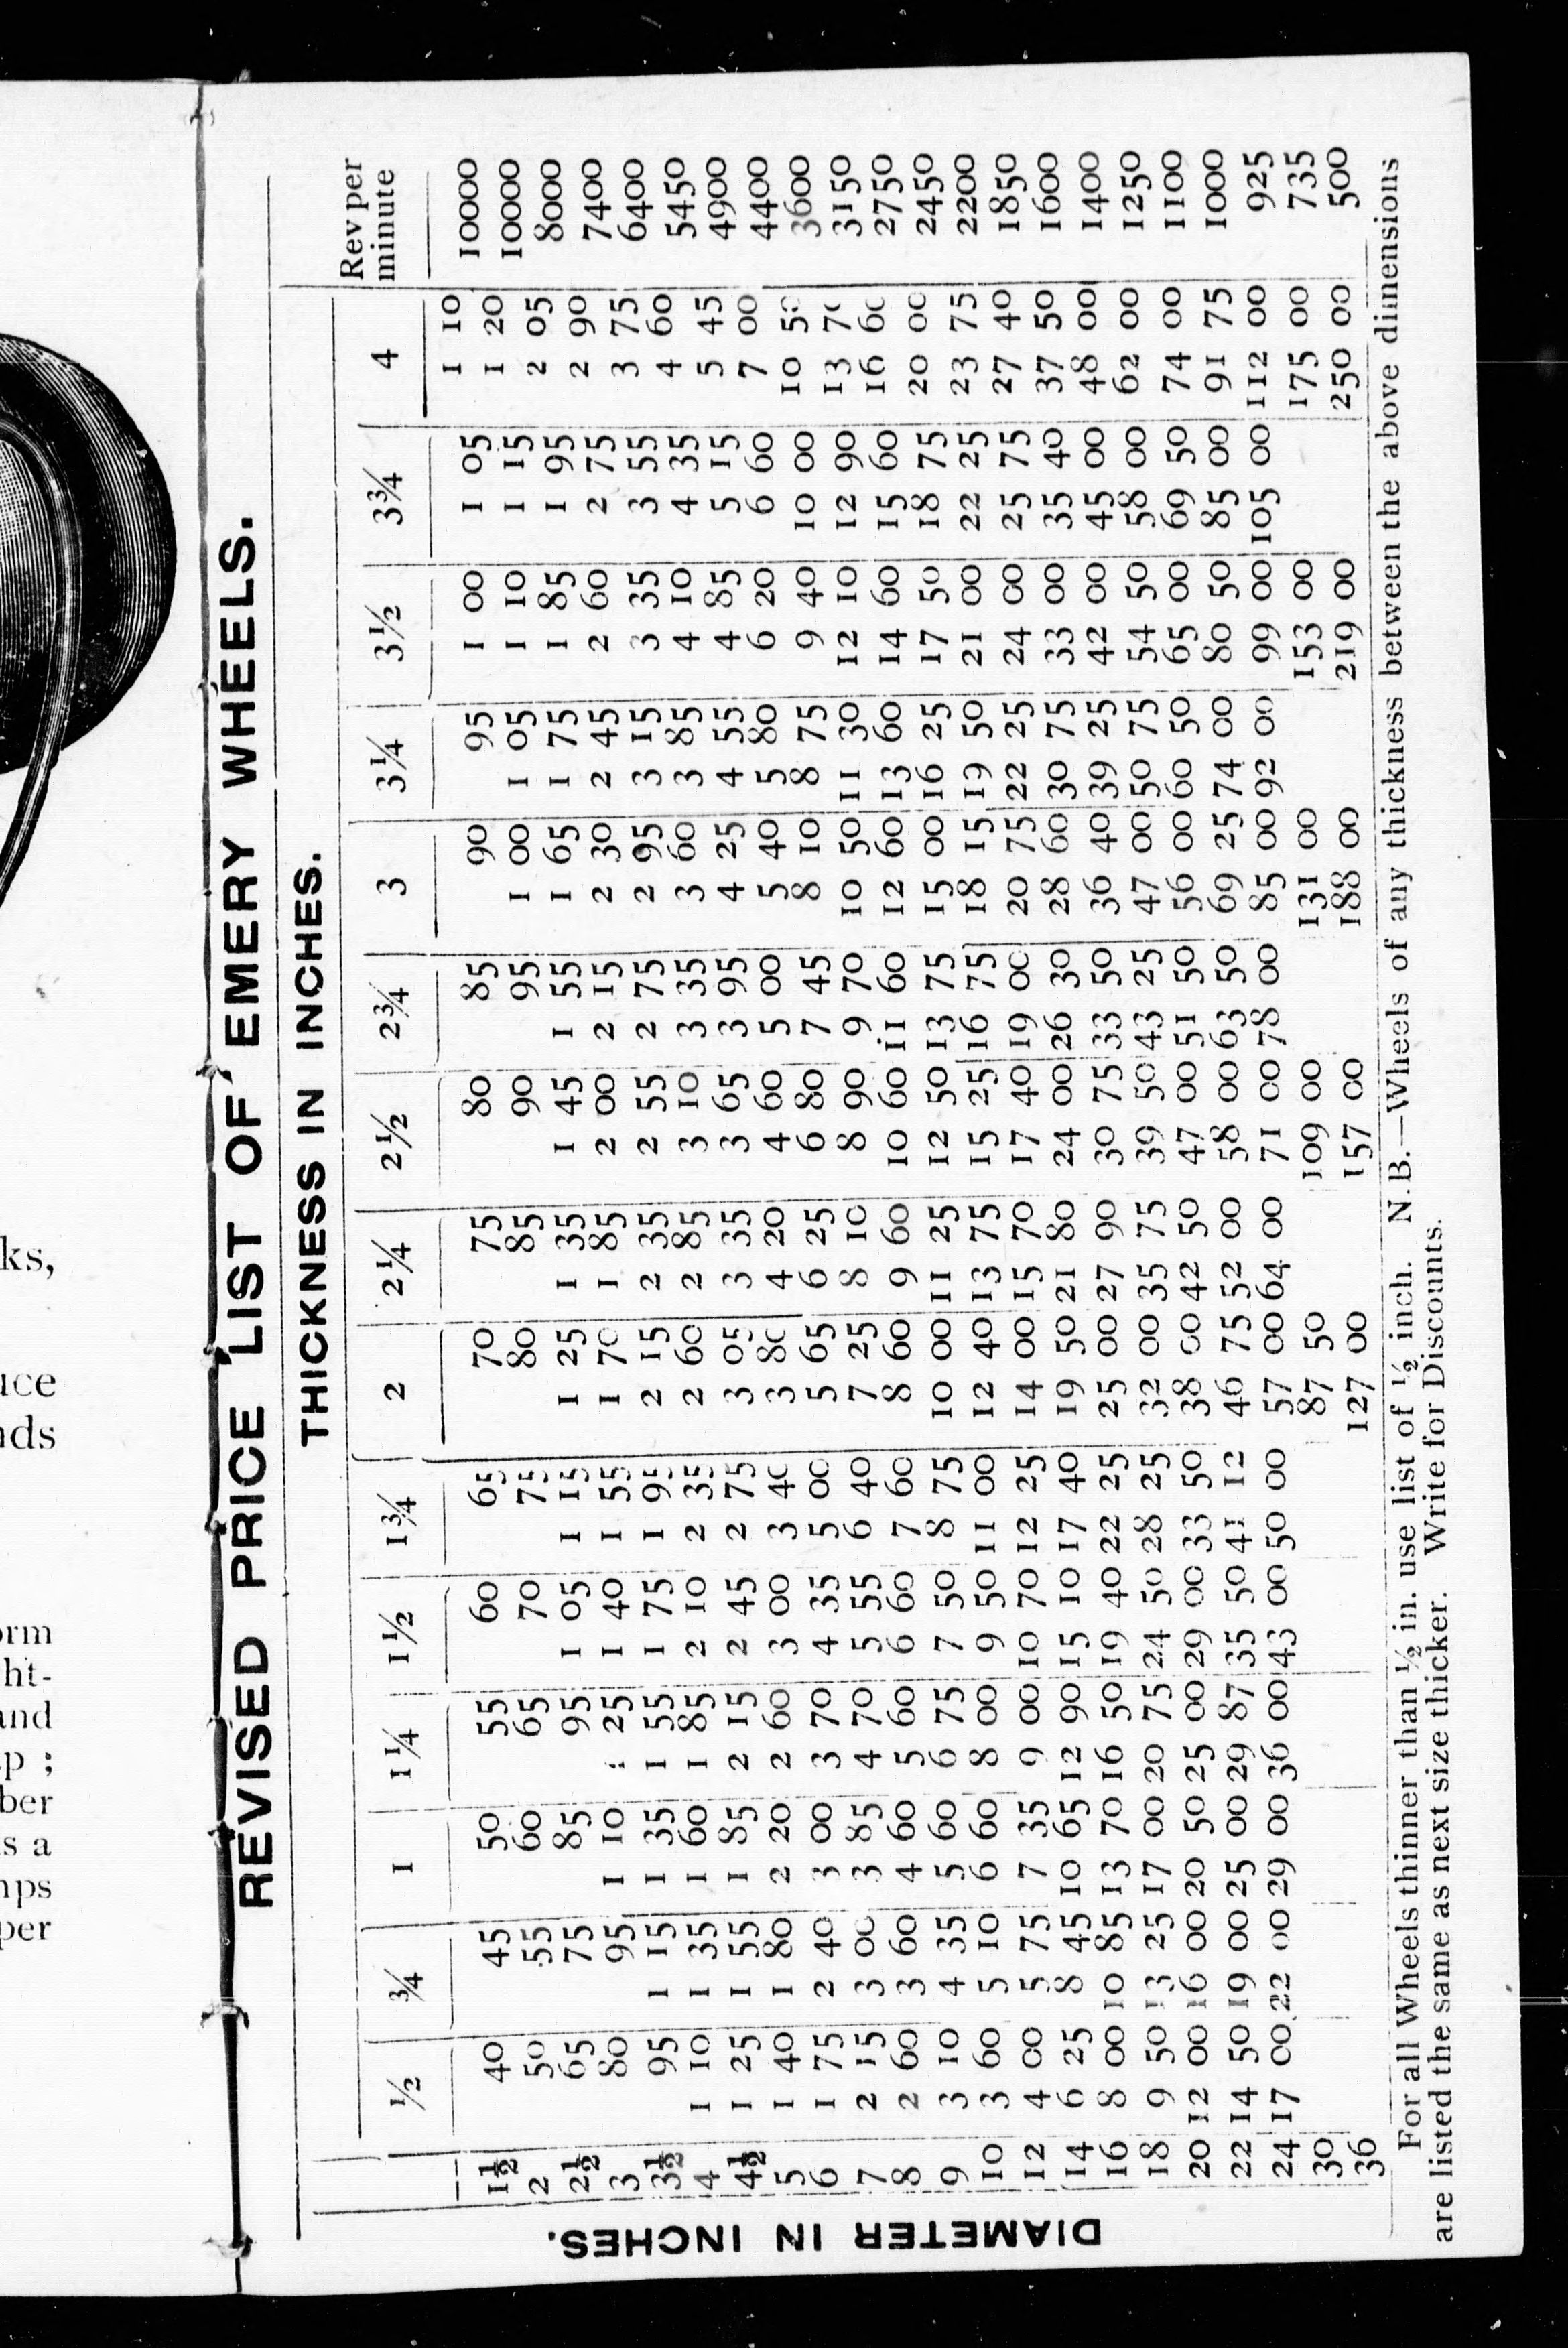 ks,
uce
nds
orm
ht-
and
p ;
ber
s a
nps
per
REVISED PRICE LIST OF EMERY WHEELS.
THICKNESS IN INCHES.
DIAMETER IN INCHES.
½ ¾ 1 1¼ 1½ 1¾ 2 2¼ 2½ 2¾ 3 3¼ 3½ 3¾ 4 Rev per
minute
1½ 40 45 50 55 60 65 70 75 80 85 90 95 1 00 1 05 1 10 10000
2 50 55 60 65 70 75 80 85 90 95 1 00 1 05 1 10 1 15 1 20 10000
2½ 65 75 85 95 1 05 1 15 1 25 1 35 1 45 1 55 1 65 1 75 1 85 1 95 2 05 8000
3 80 95 1 10 1 25 1 40 1 55 1 70 1 85 2 00 2 15 2 30 2 45 2 60 2 75 2 90 7400
3½ 95 1 15 1 35 1 55 1 75 1 95 2 15 2 35 2 55 2 75 2 95 3 15 3 35 3 55 3 75 6400
4 1 10 1 35 1 60 1 85 2 10 2 35 2 60 2 85 3 10 3 35 3 60 3 85 4 10 4 35 4 60 5450
4½ 1 25 1 55 1 85 2 15 2 45 2 75 3 05 3 35 3 65 3 95 4 25 4 55 4 85 5 15 5 45 4900
5 1 40 1 80 2 20 2 60 3 00 3 40 3 80 4 20 4 60 5 00 5 40 5 80 6 20 6 60 7 00 4400
6 1 75 2 40 3 00 3 70 4 35 5 00 5 65 6 25 6 80 7 45 8 10 8 75 9 40 10 00 10 50 3600
7 2 15 3 00 3 85 4 70 5 55 6 40 7 25 8 10 8 90 9 70 10 50 11 30 12 10 12 90 13 70 3150
8 2 60 3 60 4 60 5 60 6 60 7 60 8 60 9 60 10 60 11 60 12 60 13 60 14 60 15 60 16 60 2750
9 3 10 4 35 5 60 6 75 7 50 8 75 10 00 11 25 12 50 13 75 15 00 16 25 17 50 18 75 20 00 2450
10 3 60 5 10 6 60 8 00 9 50 11 00 12 40 13 75 15 25 16 75 18 15 19 50 21 00 22 25 23 75 2200
12 4 00 5 75 7 35 9 00 10 70 12 25 14 00 15 70 17 40 19 00 20 75 22 25 24 00 25 75 27 40 1850
14 6 25 8 45 10 65 12 90 15 10 17 40 19 50 21 80 24 00 26 30 28 60 30 75 33 00 35 40 37 50 1600
16 8 00 10 85 13 70 16 50 19 40 22 25 25 00 27 90 30 75 33 50 36 40 39 25 42 00 45 00 48 00 1400
18 9 50 13 25 17 00 20 75 24 50 28 25 32 00 35 75 39 50 43 25 47 00 50 75 54 50 58 00 62 00 1250
20 12 00 16 00 20 50 25 00 29 00 33 50 38 00 42 50 47 00 51 50 56 00 60 50 65 00 69 50 74 00 1100
22 14 50 19 00 25 00 29 87 35 50 41 12 46 75 52 00 58 00 63 50 69 25 74 00 80 50 85 00 91 75 1000
24 17 00 22 00 29 00 36 00 43 00 50 00 57 00 64 00 71 00 78 00 85 00 92 00 99 00 105 00 112 00 925
30 87 50 109 00 131 00 153 00 175 00 735
36 127 00 157 00 188 00 219 00 250 00 500
For all Wheels thinner than ½ in. use list of ½ inch. N.B.—Wheels of any thickness between the above dimensions
are listed the same as next size thicker. Write for Discounts.